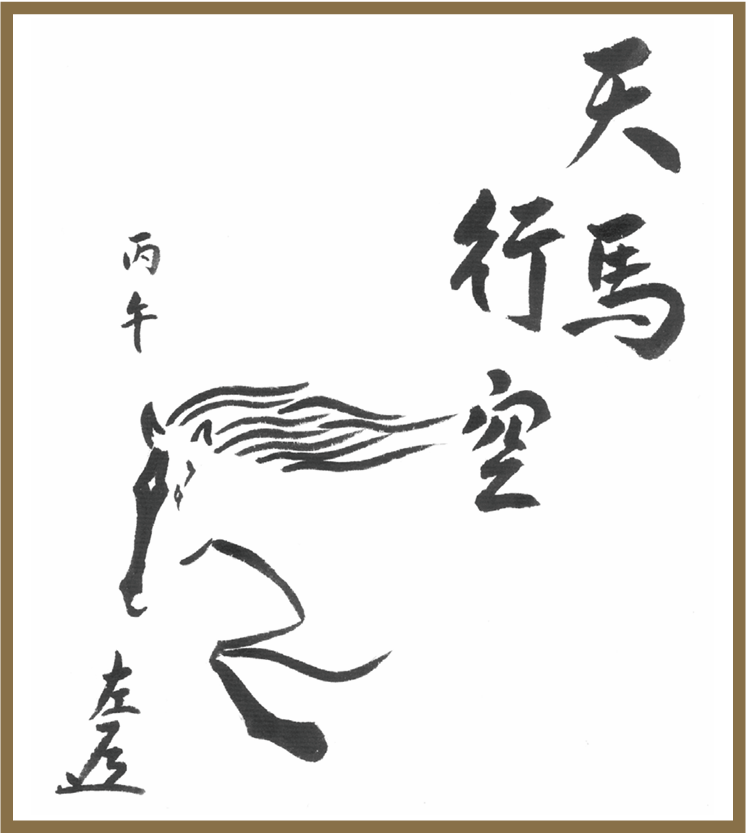 天馬
行空
丙午
左